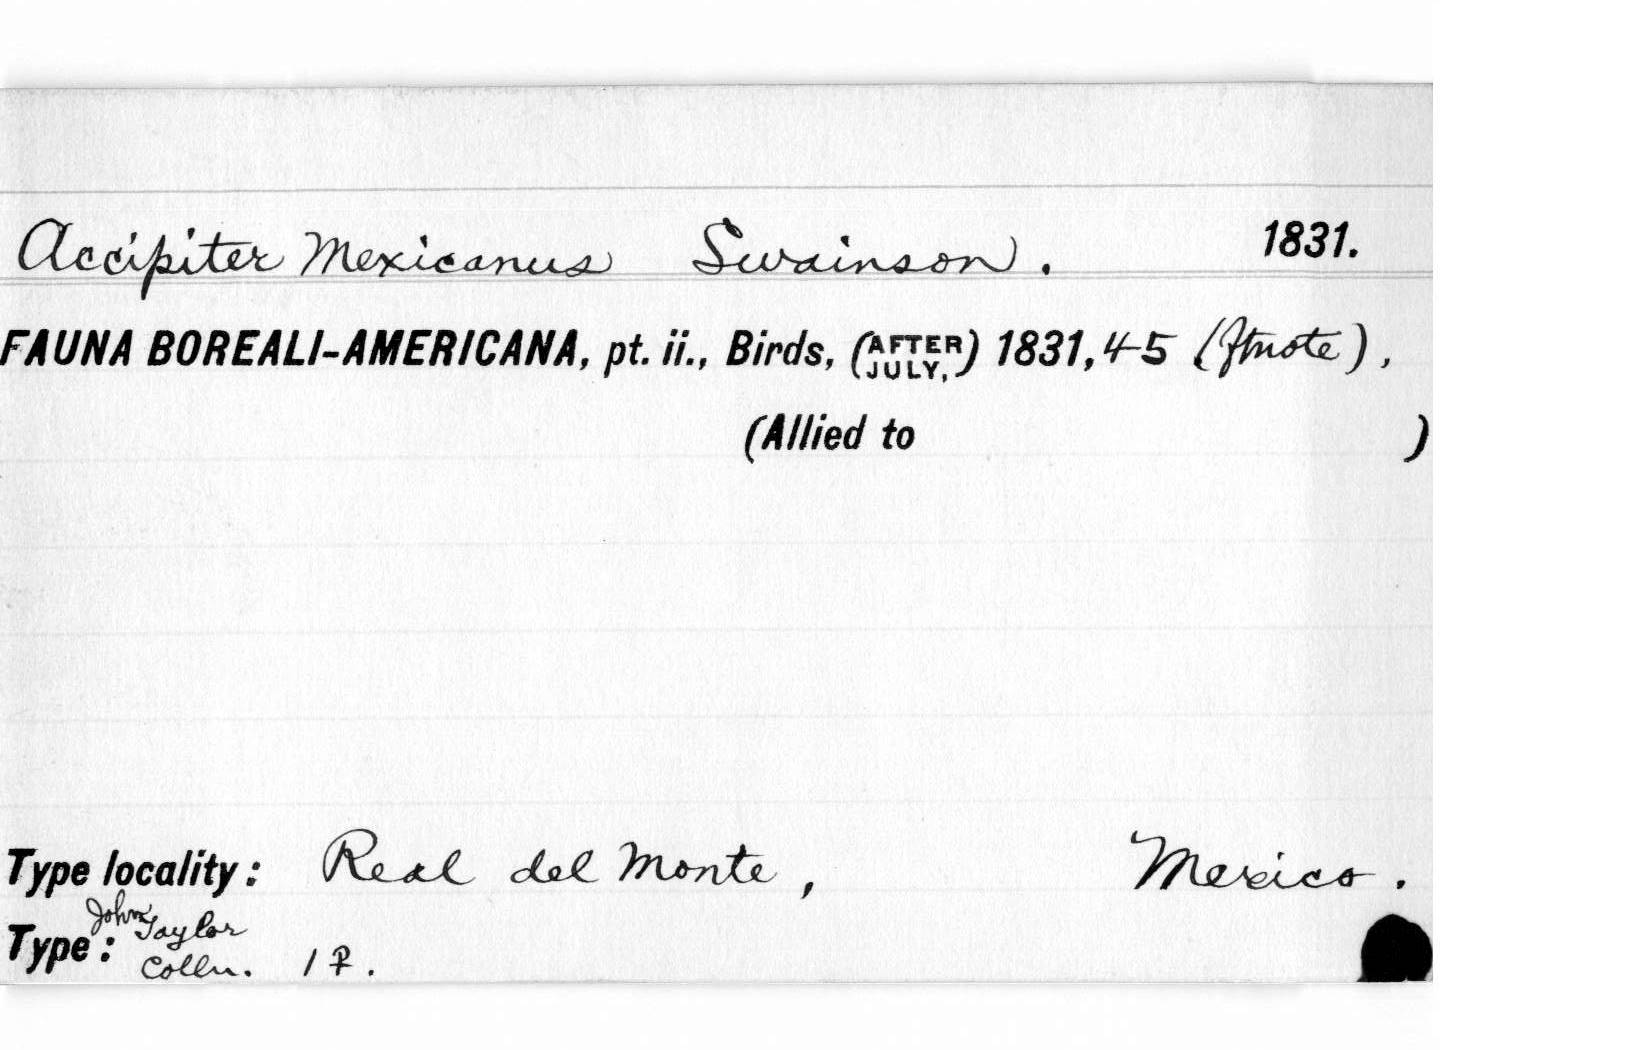 Accipiter Mexicanus Swainson. 1831.
FAUNA BOREALI-AMERICANA, pt. ii., Birds, (AFTER JULY,) 1831, 45 (ftnote),
(Allied to )
Type locality: Real del Monte, Mexico.
Type: John Taylor Colln. 1 ♀.